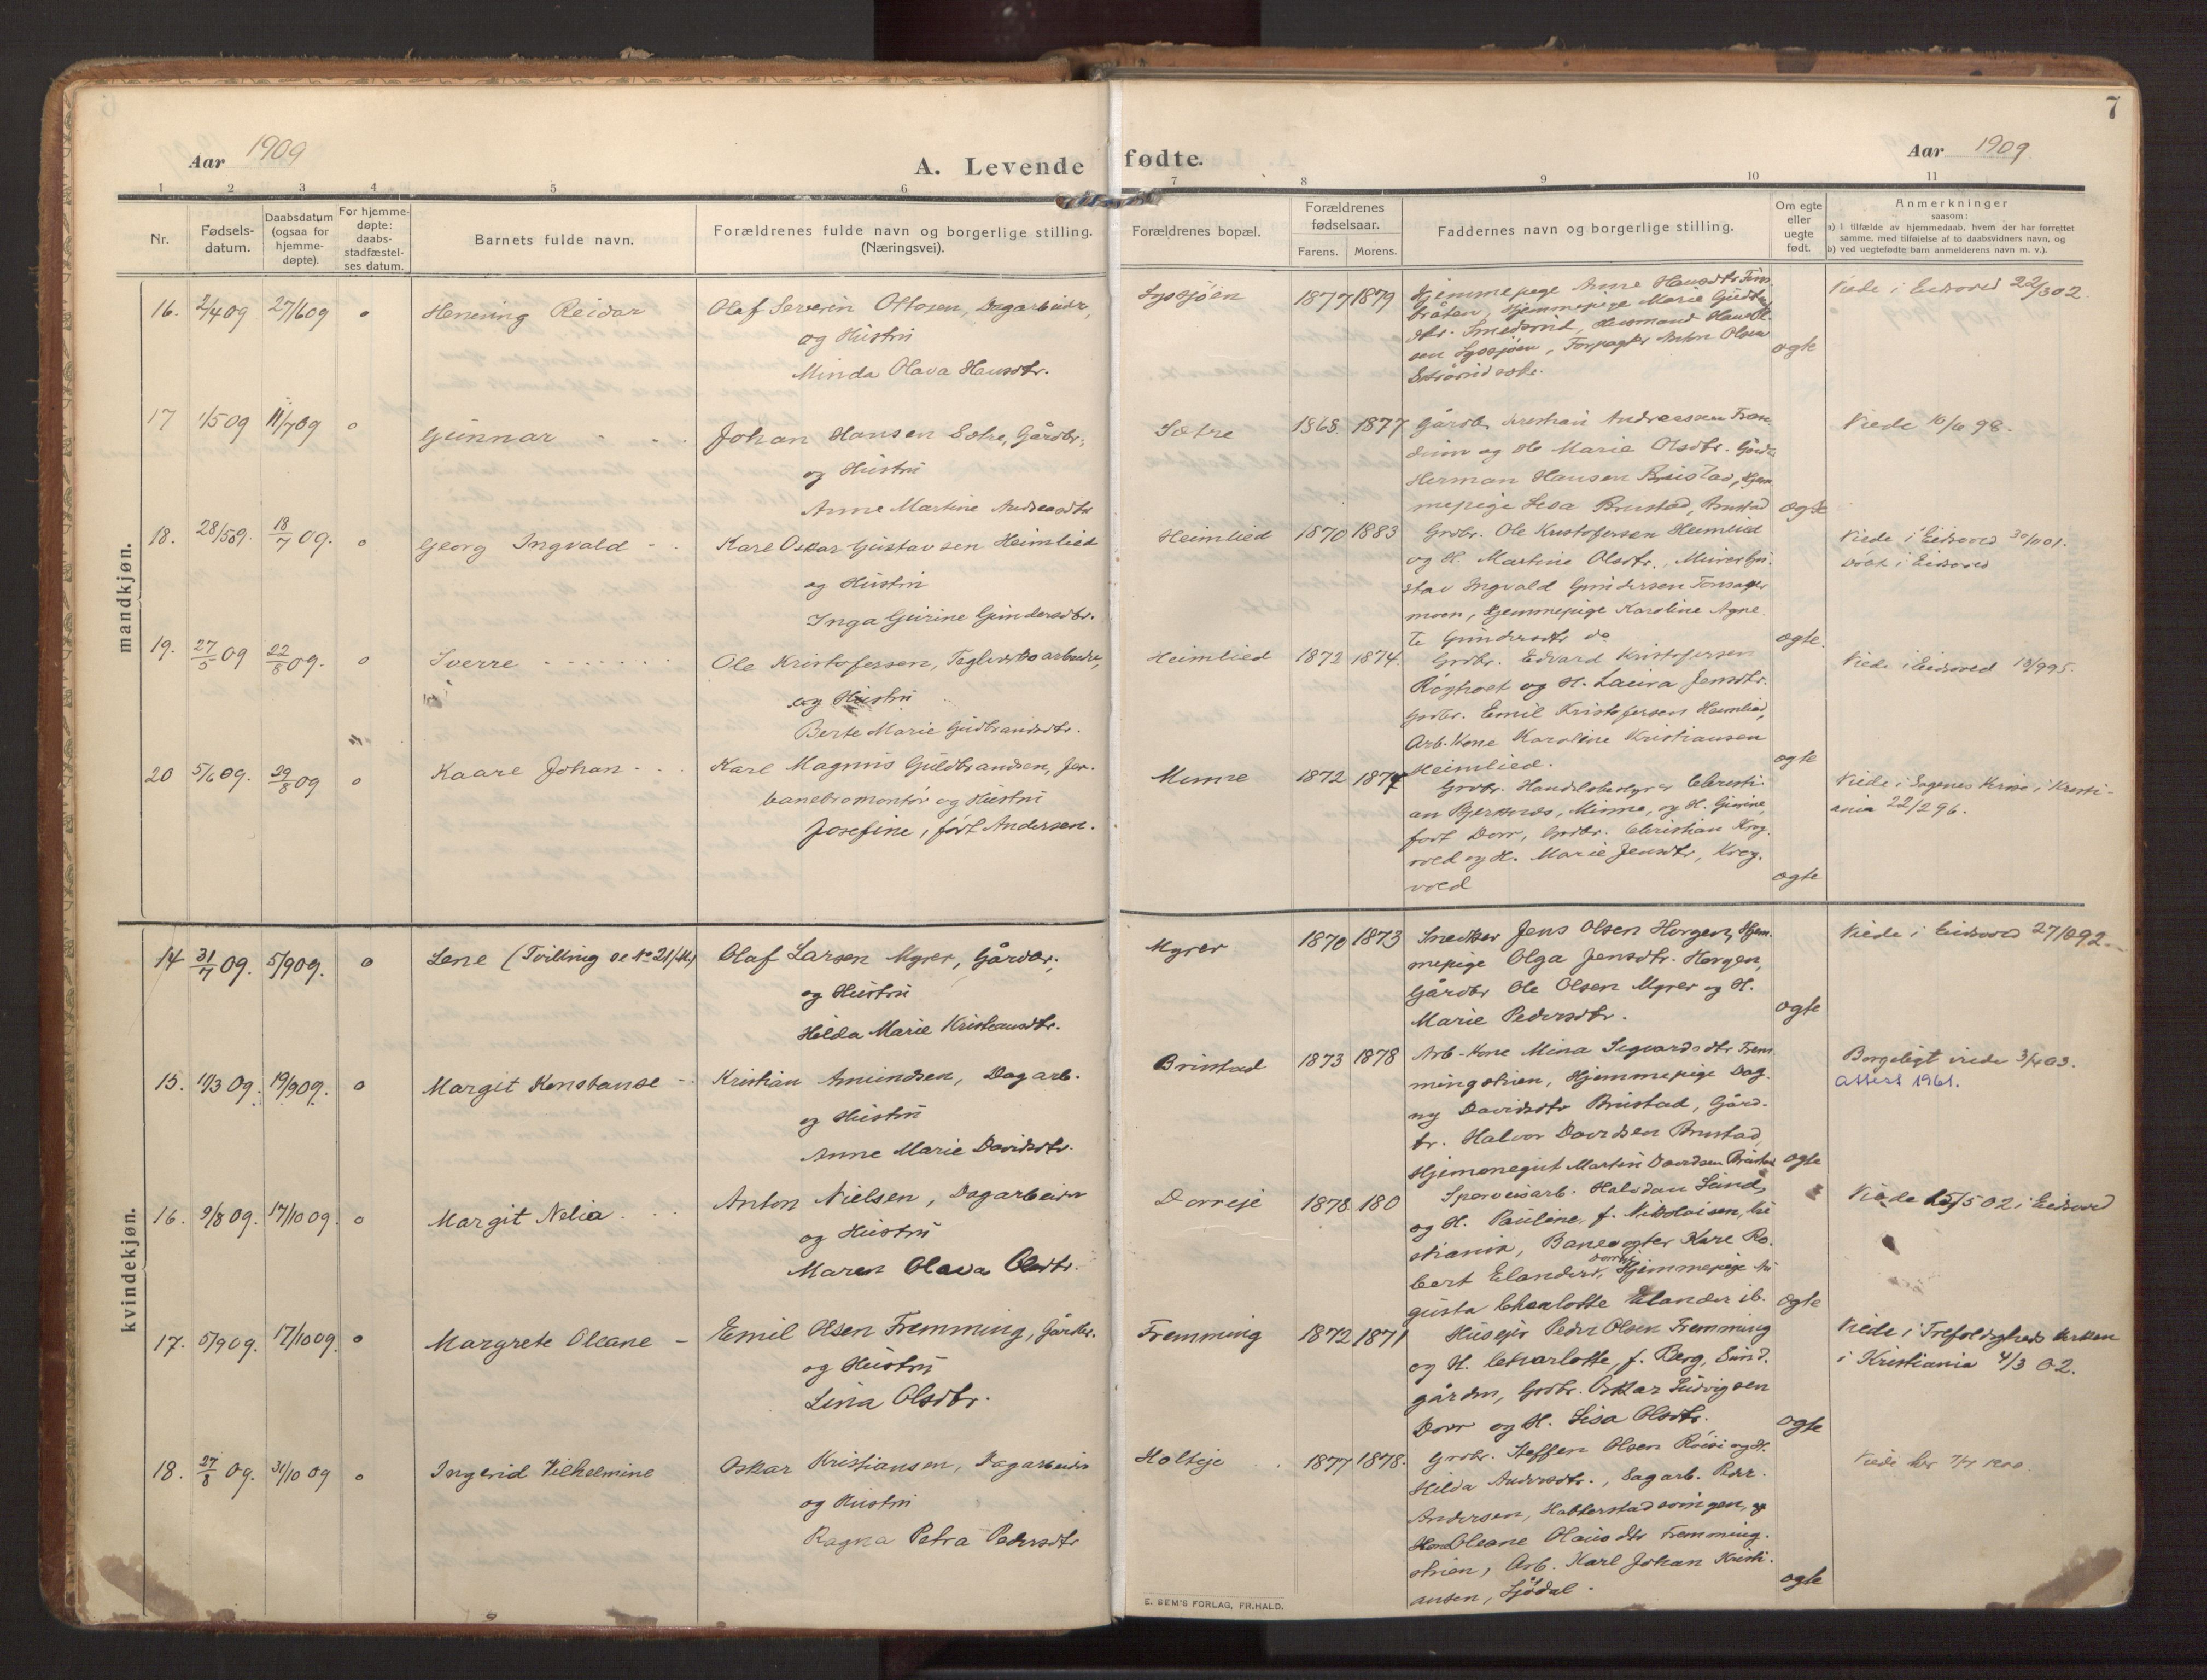 7
Aar 1909
A. Levende fødte.
Aar 1909
1 2 3 4 5 6 7 8 9 10 11
Nr.
Fødsels-
datum.
Daabsdatum
(ogsaa for
hjemme-
døpte).
For hjemme-
døpte:
daabs-
stadfæstel-
ses datum.
Barnets fulde navn.
Forældrenes fulde navn og borgerlige stilling.
(Næringsvei).
Forældrenes bopæl.
Forældrenes
fødselsaar.
Farens. Morens.
Faddernes navn og borgerlige stilling.
Om egte
eller
uegte
født.
Anmerkninger
saasom:
a) i tilfælde av hjemmedaab, hvem der har forrettet
samme, med tilføielse af to daabsvidners navn, og
b) ved uegtefødte barn anmelderens navn m. v.).
mandkjøn.
16. 2/4 09 27/6 09 o
Henning Reidar
Olaf Severin Ottosen, Dagarbeider,
og Hustru
Minda Olava Hansdtr.
1877 1879
Hjemmepige Anne Hansdtr
bråten, Hjemmepige Marie
dtr. Smedsrud, Husmand
sen, Forpagter Anton Olsen
ægte
Viede i Eidsvold 22/3 02.
17 1/5 09 11/7 09 o
Gunnar
Johan Hansen Sætre, Gårdbr.,
og Hustru
Anne Martine Andreasdtr
Sætre
1868. 1877
Gårdbr. Kristian Andreassen
og H. Marie Olsdtr. Gårdbr.
Herman Hansen Brustad, Hjem
mepige Lesa Brustad, Brustad
ægte
Viede 10/6 98.
18. 28/5 09. 18/7 09. o
Georg Ingvald
Karl Oskar Gustavsen Heimlied
og Hustru
Inga Gurine Gundersdtr.
Heimlied
1870 1883
Grdbr. Ole Kristofersen Heimlied
og H. Martine Olsdtr., Murer Gu-
stav Ingvald Gundersen Tonsager
moen, Hjemmepige Karoline Agne
te Gundersdtr do
ægte.
Viede i Eidsvold 30/11 01.
døbt i Eidsvold
19. 27/5 09 22/8 09. o
Sverre
Ole Kristofersen, Teglverksarbeider,
og Hustru
Berte Marie Gudbrandsdtr.
Heimlied
1872 1874.
Grdbr. Edvard Kristofersen
Røgholt og H. Laura Jensdtr.
Grdbr. Emil Kristofersen Heimlied,
Arb. Kone Karoline Kristiansen
Heimlied.
ægte
Viede i Eidsvold 18/9 95.
20 5/6 09. 29/8 09 o
Kaare Johan
Karl Magnus Guldbrandsen, Jer-
banebromontør og Hustru
Josefine, født Andersen.
Minne
1872 1874
Grdbr. Handelsbestyrer Christi-
an Bjerknes, Minne, og H. Gurine,
født Dorr, Grdbr. Christian Krog
vold og H. Marie Jensdtr, Krog-
vold
ægte
Viede i Sagenes Kirke i Kristi-
ania 22/2 96.
kvindekjøn.
14 31/7 09. 5/9 09. o
Lene (Tvilling se No 21/M)
Olaf Larsen Myrer, Gårdbr.,
og Hustru
Hilda Marie Kristiansdtr.
Myrer
1870 1873
Snedker Jens Olsen Horgen, Hjem-
mepige Olga Jensdtr. Horgen,
Gårdbr Ole Olsen Myrer og H.
Marie Pedersdtr.
ægte
Viede i Eidsvold 27/10 92.
15. 11/3 09. 19/9 09. o
Margit Konstanse
Kristian Amundsen, Dagarb.
og Hustru
Anne Marie Davidsdtr.
Brustad
1873 1878
Arb.-Kone Mina Sigvardsdtr Frem
mingstrien, Hjemmepige Dag-
ny Davidsdtr Brustad, Gård-
br. Halvor Davidsen Brustad,
Hjemmegut Martin Davidsen Brustad
ægte
Borgeligt viede 3/4 03.
attest 1961.
16. 9/8 09. 17/10 09. o
Margit Nelia
Anton Nielsen, Dagarbeider
og Hustru
Maren Olava Olsdtr.
Dorreje
1878 180
Sporveisarb. Halvdan Lund,
og H. Pauline, f. Nikolaisen, Kri
stiania, Banevogter Karl Ro-
bert Elander, Dorreje, Hjemmepige Au
gusta Charlotte Elander ib.
ægte
Viede 5/5 02 i Eidsvold
17. 5/9 09. 17/10 09. o
Margrete Oleane
Emil Olsen Fremming, Gårdbr.
og Hustru
Lina Olsdtr.
Fremming
1872 1871
Huseier Peder Olsen Fremming
og H. Charlotte, f. Berg, Sund-
gården, Grdbr. Oskar Ludvigsen
Dorr og H. Lisa Olsdtr.
ægte
Viede i Trefoldigheds kirken
i Kristiania 4/3 02.
18. 27/8 09. 31/10 09 o
Ingerid Vilhelmine
Oskar Kristiansen, Dagarbeider
og Hustru
Ragna Petra Pedersdtr
Holteje
1877 1878.
Grdbr. Steffen Olsen Røise og H.
Hilda Andersdtr., Sagarb. Peder
Andersen, Habberstadsvingen, og
Kone Oleane Olausdtr Fremming-
strien, Arb. Karl Johan Kristi-
ansen, Sjødal.
ægte
Viede her 7/7 1900
E. SEM'S FORLAG, FR.HALD.